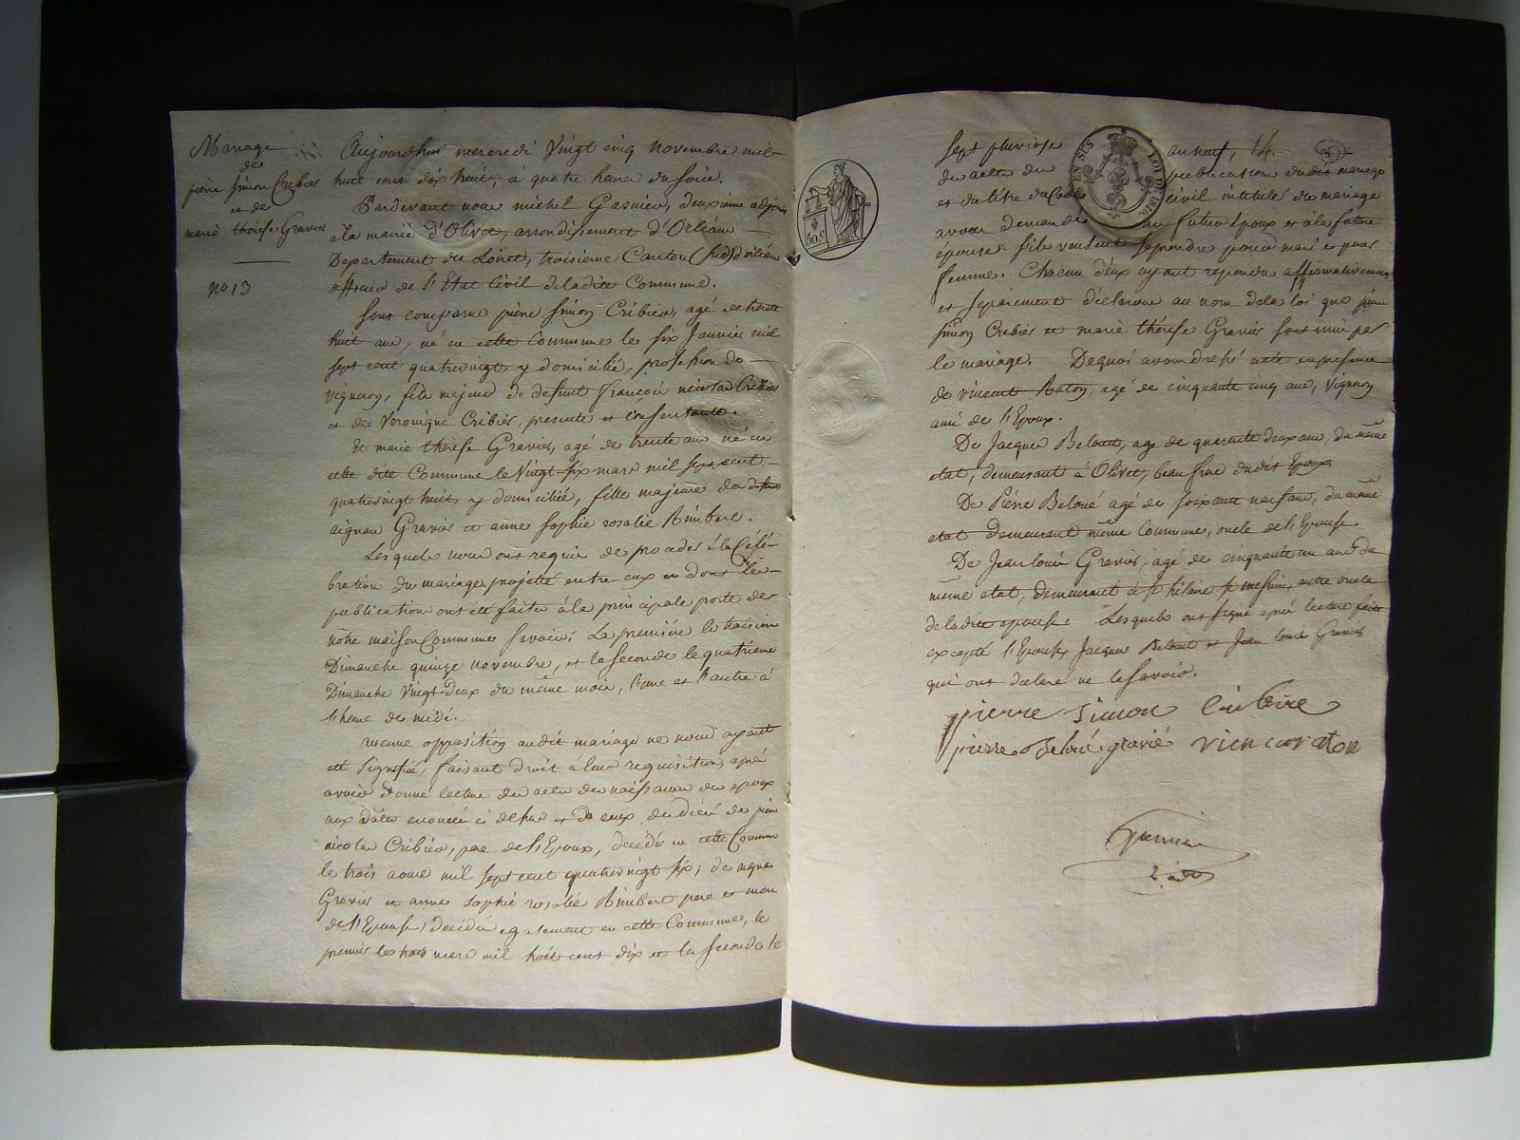 Mariage
de
pierre Simon Cribier
et de
marie therese Gravier
no 13
Aujourdhui mercredi Vingt cinq novembre mil
huit cent dix huit, a quatre heures du soir.
Pardevant nous michel Gasnier, deuxieme adjoint
a la mairie d'Olivet, arrondissement d'Orléans
Departement du Loiret, troisieme Canton (sud) d'orléans
officier de l'Etat Civil de ladite Commune.
Sont comparus pierre Simon Cribier, agé de trente
huit ans, né en cette Commune le six Janvier mil
sept cent quatrevingt y domicilié, profession de
vigneron, fils majeur de defunt francois nicolas Cribier
et de Veronique Cribier, presente et consentante.
Et marie therese Gravier, agé de trente ans né en
cette dite Commune le Vingt six mars mil sept cent
quatrevingt huit y domicilié, fille majeure de defunts
aignan Gravier et anne Sophie rosalie Rimbert.
Lesquels nous ont requis de proceder à la Célé-
bration du mariage projetté entre eux et dont les
publications ont été faites à la principale porte de
notre maison Commune savoir; La premiere le troisieme
Dimanche quinze novembre, et la seconde le quatrieme
Dimanche Vingt-deux du même mois, l'une et l'autre à
l'heure de midi.
aucune opposition audit mariage ne nous ayant
été signifié, faisant droit à leur requisition, après
avoir donné lecture des actes de naissance des epoux
aux dates enoncées ci dessus et de ceux de décès de
nicolas Cribier, pere de l'Epoux, decédé en cette Commune
le trois mil sept cent quatrevingt six; de aignan
Gravier et anne Sophie rosalie Rimbert pere et mere
de l'Epouse, decédés egalement en cette Commune, le
premier le trois mars mil huit cent dix et la seconde le
sept pluviose an neuf, 14.
des actes de publication dudit mariage
et du titre du Code Civil intitulé du mariage
avons demandé au futur epoux et à la future
épouse s'ils veulent se prendre pour mari et pour
femme. Chacun d'eux ayant repondu affirmativement
et separement déclarons au nom de la loi que pierre
Simon Cribier et marie thérese Gravier sont unis par
le mariage. De quoi avons dressé acte en presence
de vincent Raton, agé de cinquante cinq ans, Vigneron
ami de l'Epoux.
De Jacques Beloué, agé de quarante deux ans, du même
etat, demeurant à Olivet, beau frere dudit Epoux
De Pierre Beloué agé de soixante neuf ans, du même
etat demeurant même Commune, oncle de l'Epouse.
De Jean louis Gravier, agé de cinquante un ans de
même etat, demeurant à St hilaire St mesmin, autre oncle
de ladite epouse. Lesquels ont signé après lecture faite
excepté l'Epouse, Jacques Beloué et Jean louis Gravier
qui ont declaré ne le savoir.
pierre simon Cribier
pierre Beloué gravié vien cen raton
Gasnier